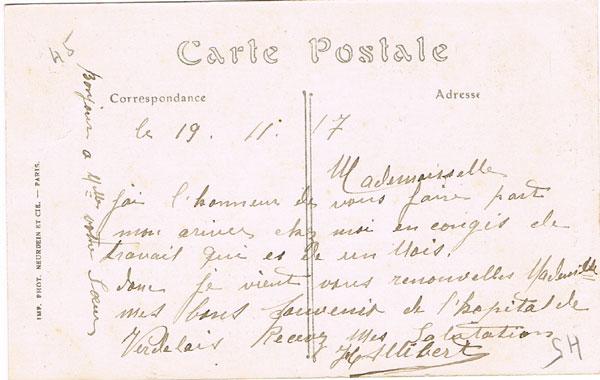 Carte Postale
Correspondance
Adresse
le 19 . 11 . 17
Mademoiselle
jai l'honneur de vous faire part
mon ariver chez moi en congés de
travail qui es de un Mois.
donc je vient vous renouvelles Mademoiselle
mes bons souvenir de l'hopital de
Verdelais Recevez Mes Salutation
Bonjour a Mlle votre Soeur
IMP. PHOT. NEURDEIN ET CIE. — PARIS.
SH